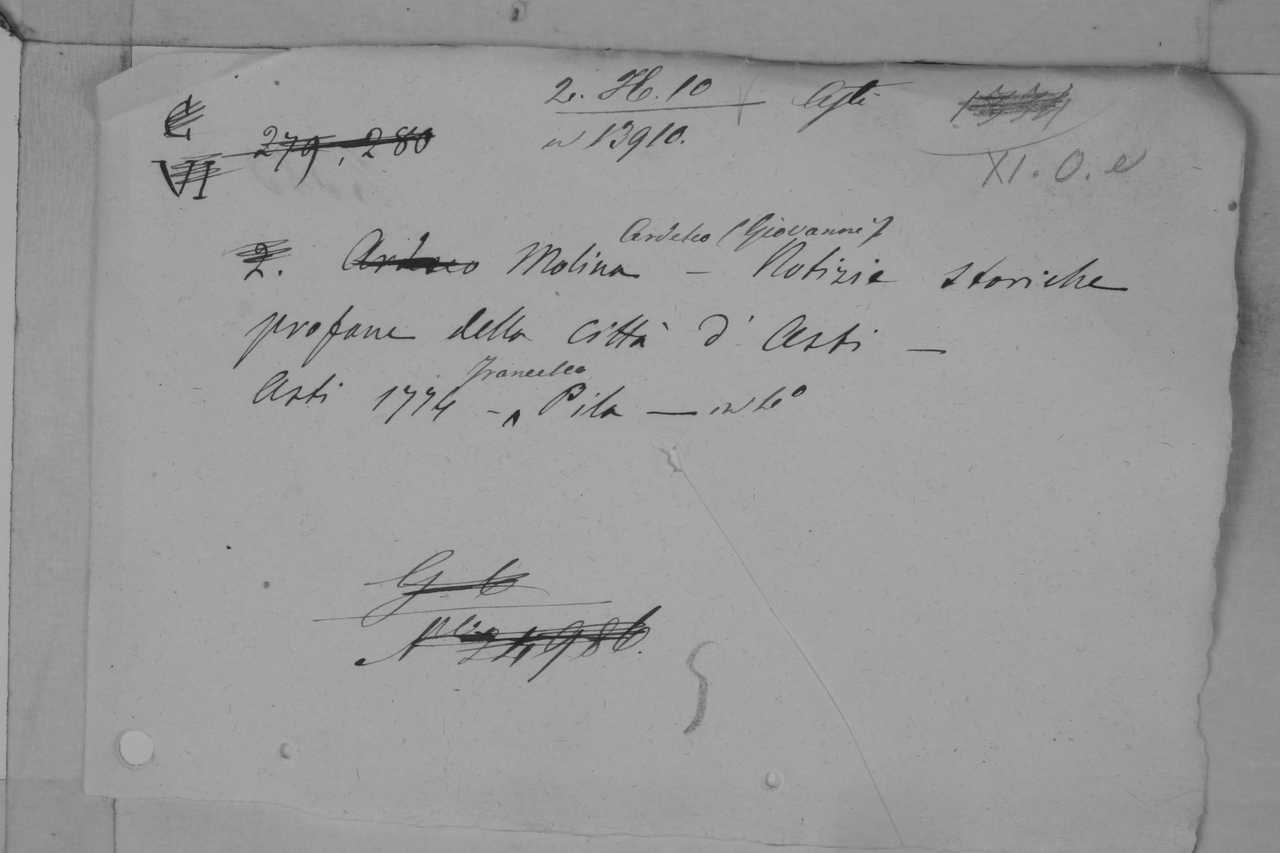 C 2. H. 10 Asti
VI 279, 280 n 13910.
XI. O. e
Ardesco (Giovanni)
2. Molina - Notizie storiche
profane della città d'Asti -
Francesco
Asti 1774 - Pila - in 4°
G. 6
24986.